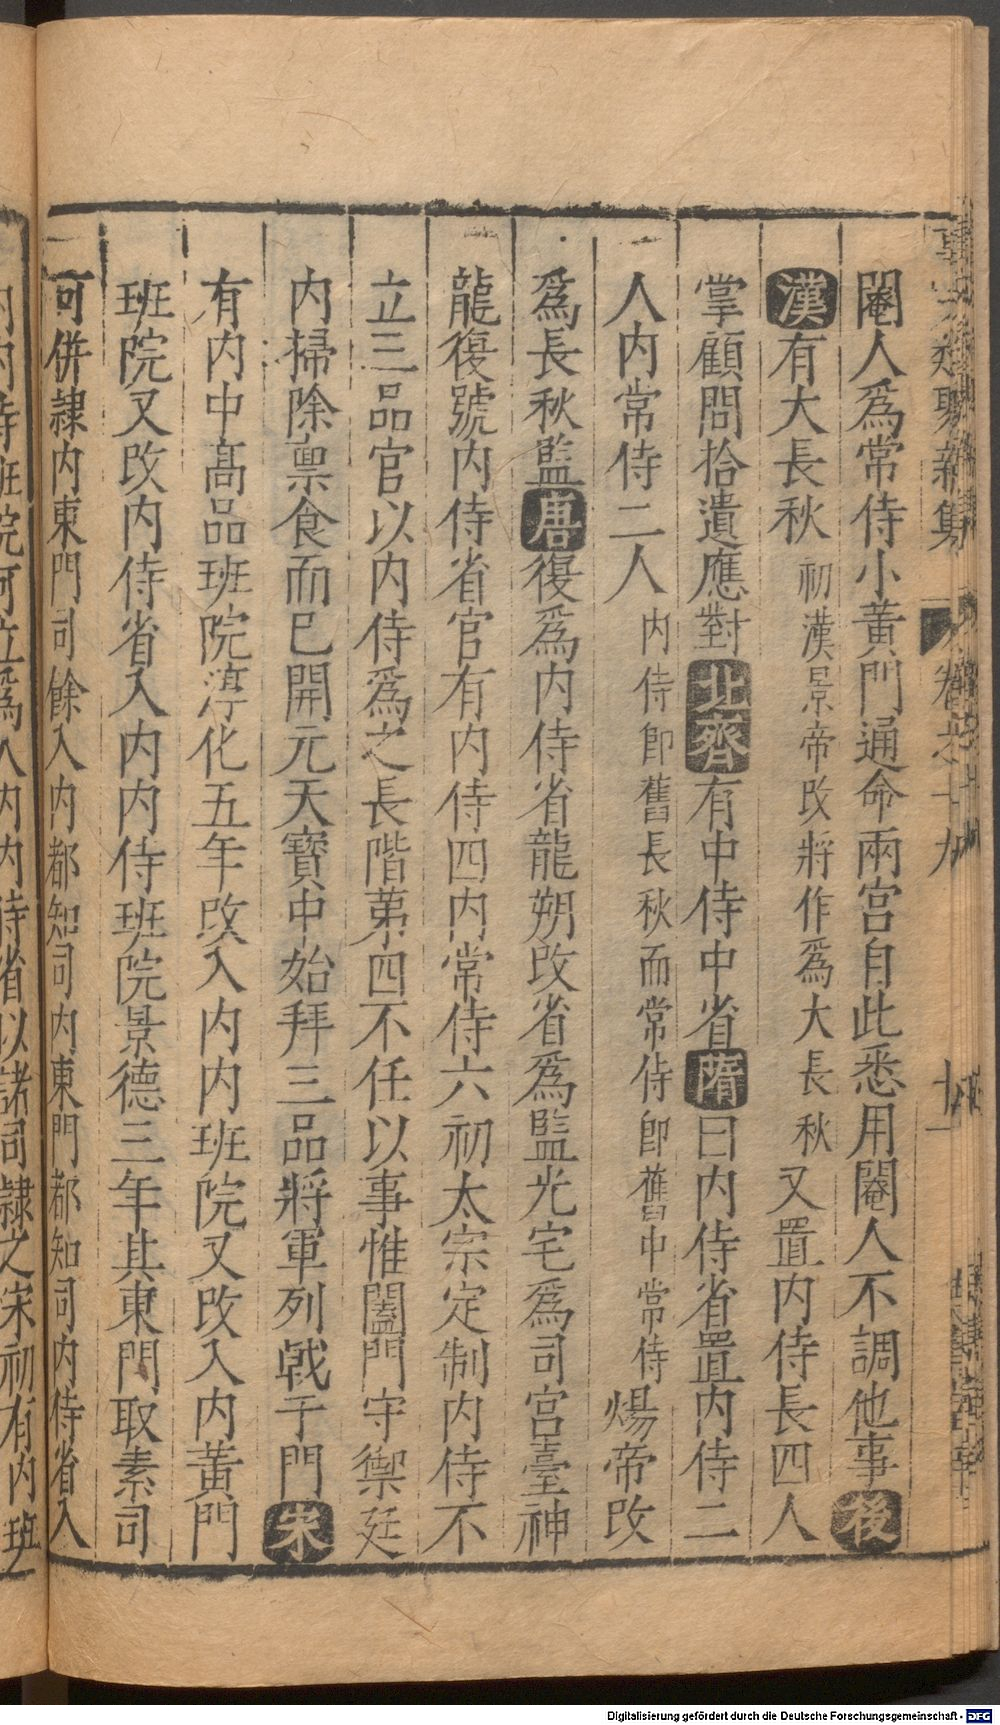 閹人爲常侍小黃門通命兩宮自此悉用閹人不調他事後
漢有大長秋初漢景帝改將作爲大長秋又置内侍長四人
掌顧問拾遺應對北齊有中侍中省隋曰内侍省置内侍二
人内常侍二人内侍即舊長秋而常侍即舊中常侍煬帝改
爲長秋監唐復爲内侍省龍朔改省爲監光宅爲司宮臺神
龍復號内侍省官有内侍四内常侍六初太宗定制内侍不
立三品官以内侍爲之長階第四不任以事惟闔門守禦廷
内掃除稟食而已開元天寶中始拜三品將軍列戟于門宋
有内中高品班院淳化五年改入内内班院又改入内黃門
班院又改内侍省入内内侍班院景德三年其東門取素司
可併隷内東門司餘入内都知司内東門都知司内侍省入
内内侍班院可立爲入内内侍省以諸司隷之宋初有内班
Digitalisierung gefördert durch die Deutsche Forschungsgemeinschaft - DFG